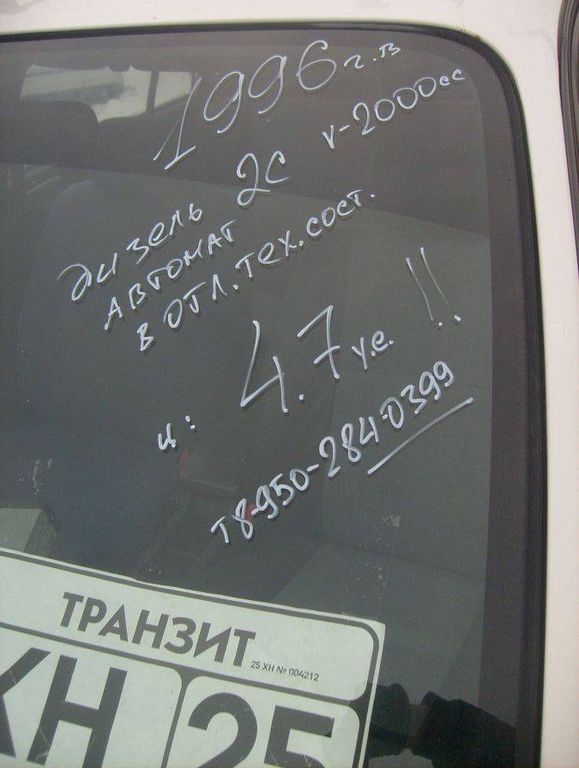 1996 г.в
дизель 2С V-2000сс
АВТОМАТ
В ОТЛ. ТЕХ. СОСТ.
ц: 4.7 у.е. !!
Т 8-950-284-0399
ТРАНЗИТ
25 ХН № 004212
ХН 25